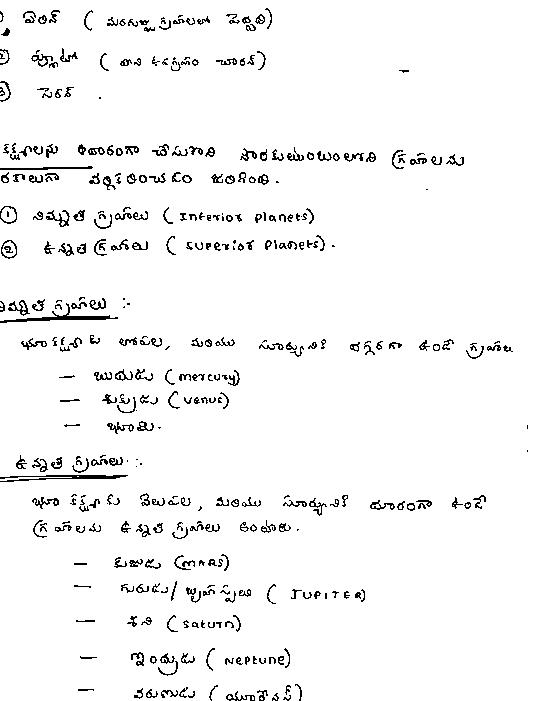 ① ఏరిస్ ( మరుగుజ్జు గ్రహాలలో పెద్దది)
② ప్లూటో ( దాని ఉపగ్రహం చారన్ )
③ సెరస్ .
కక్ష్యలను ఆధారంగా చేసుకొని సౌరకుటుంబంలోని గ్రహాలను
రకాలుగా వర్గీకరించడం జరిగింది.
① నిమ్నత గ్రహాలు ( Interior Planets)
② ఉన్నత గ్రహాలు ( superior Planets).
నిమ్నత గ్రహాలు :-
భూకక్ష్యకు లోపల, మరియు సూర్యునికి దగ్గరగా ఉండే గ్రహాలు
— బుధుడు (mercury)
— శుక్రుడు (venus)
— భూమి.
ఉన్నత గ్రహాలు :-
భూకక్ష్యకు వెలుపల, మరియు సూర్యునికి దూరంగా ఉండే
గ్రహాలను ఉన్నత గ్రహాలు అంటారు.
— కుజుడు (MARS)
— గురుడు/ బృహస్పతి ( JUPITER)
— శని ( saturn)
— ఇంద్రుడు ( Neptune)
— వరుణుడు ( యురేనస్)